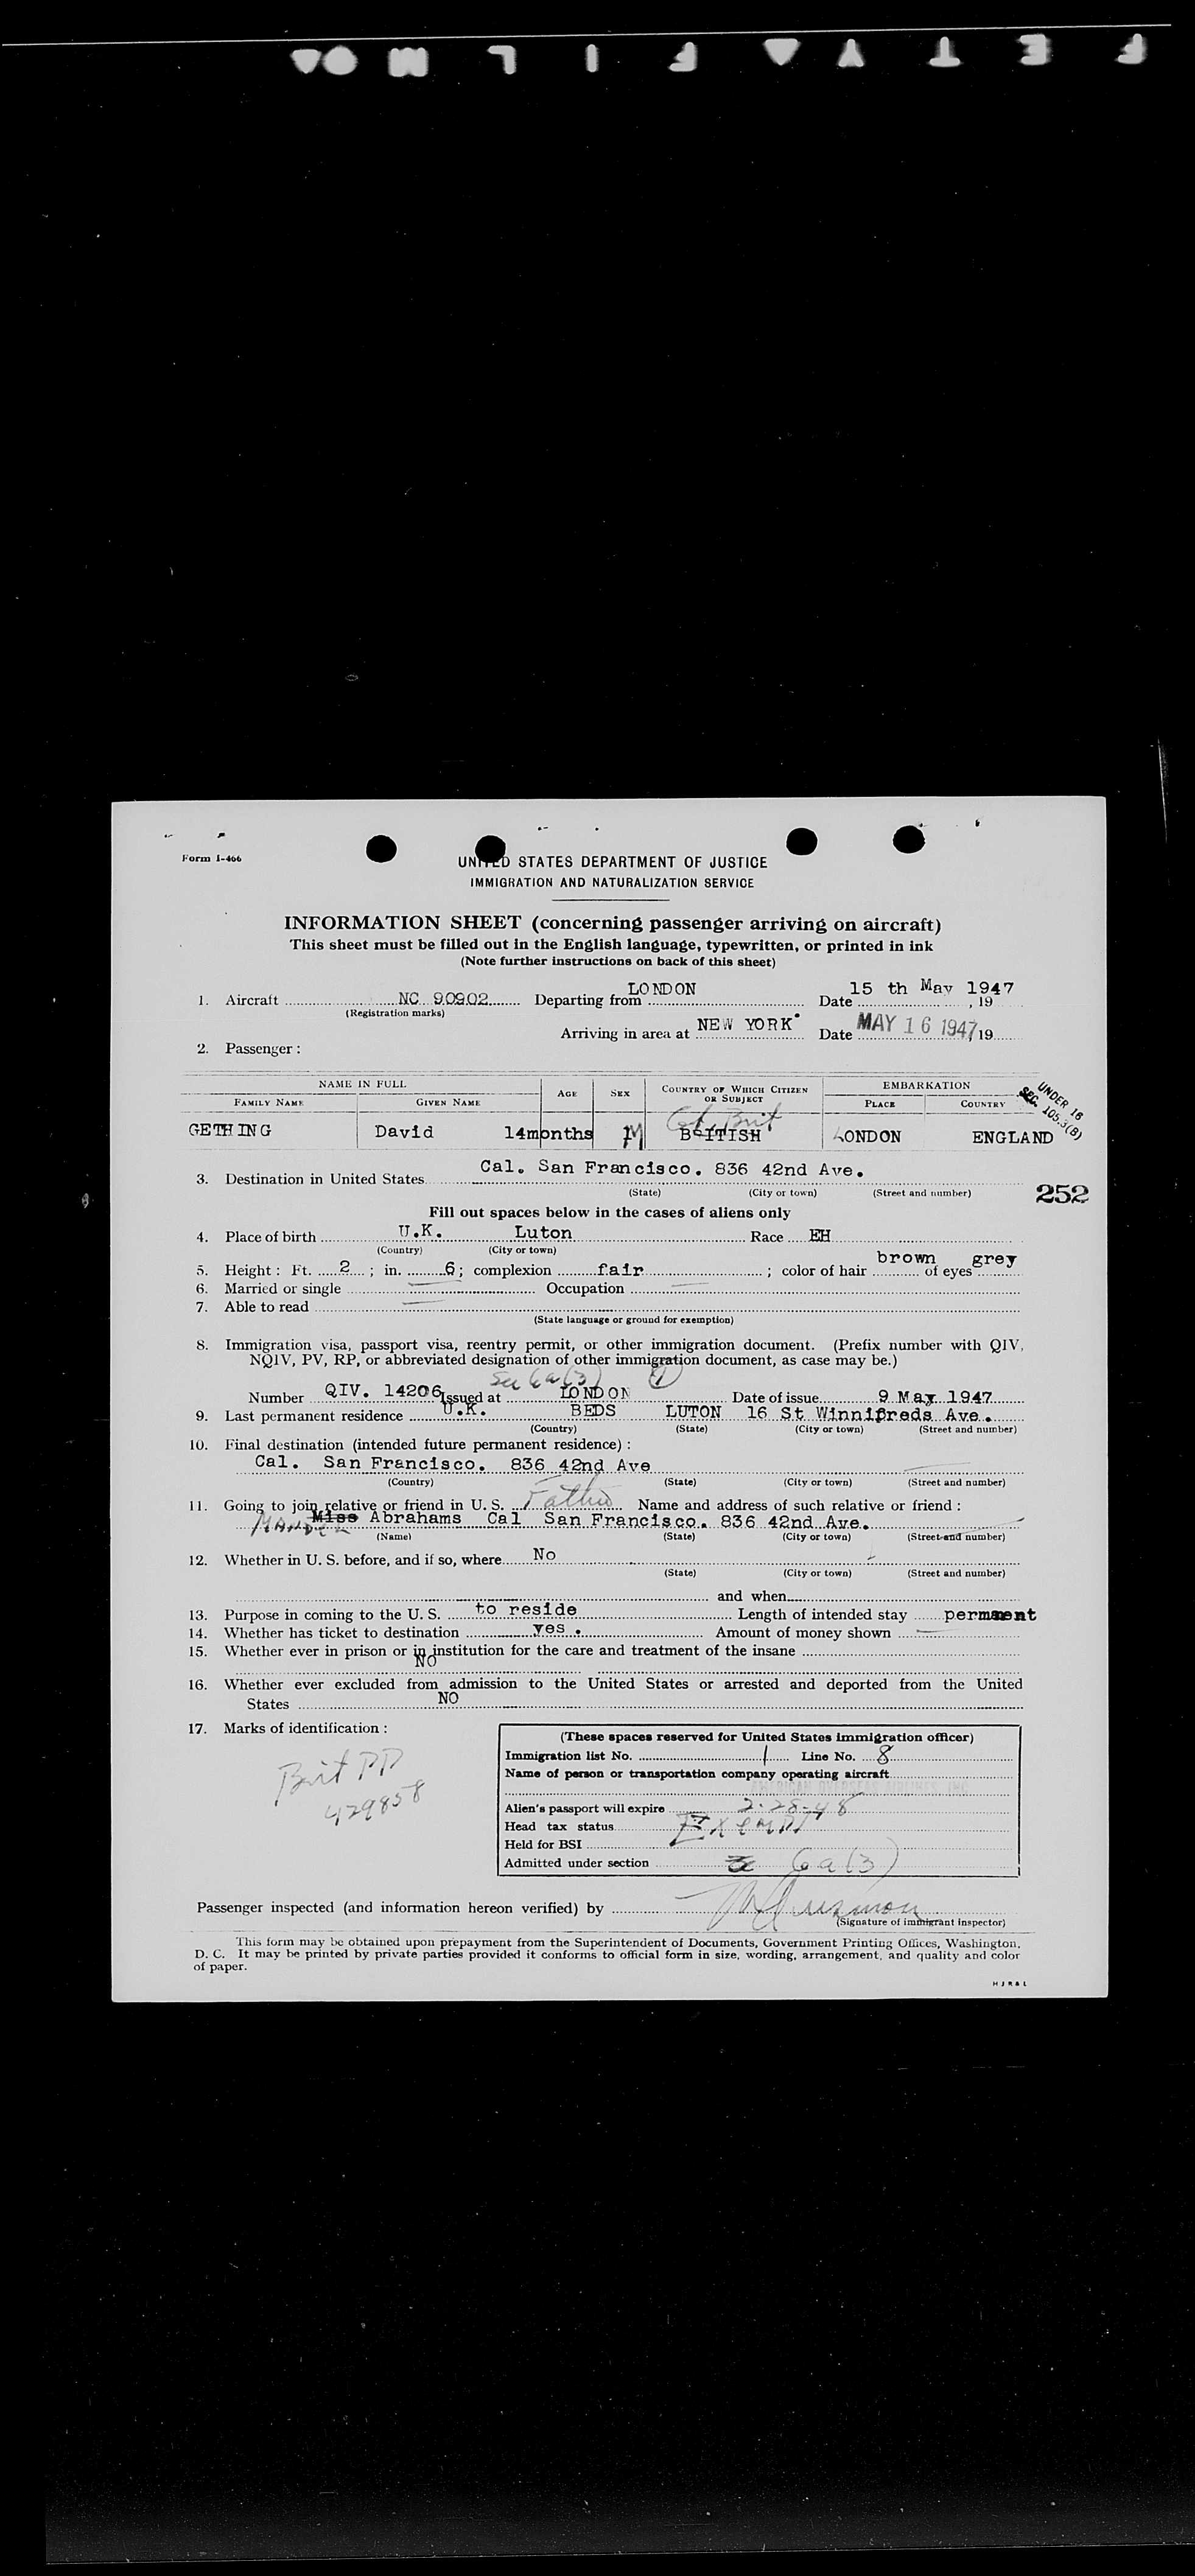 SAFETY FILM
Form I-466
UNITED STATES DEPARTMENT OF JUSTICE
IMMIGRATION AND NATURALIZATION SERVICE
INFORMATION SHEET (concerning passenger arriving on aircraft)
This sheet must be filled out in the English language, typewritten, or printed in ink
(Note further instructions on back of this sheet)
1. Aircraft NC 90902 Departing from LONDON Date 15 th May 1947, 19
(Registration marks)
Arriving in area at NEW YORK Date MAY 16 1947, 19
2. Passenger :
NAME IN FULL AGE SEX COUNTRY OF WHICH CITIZEN OR SUBJECT EMBARKATION
FAMILY NAME GIVEN NAME PLACE COUNTRY
UNDER 16
SEC. 105.3(B)
Gt. Brit
GETHING David 14months M BRITISH LONDON ENGLAND
3. Destination in United States Cal. San Francisco. 836 42nd Ave.
(State) (City or town) (Street and number)
252
Fill out spaces below in the cases of aliens only
4. Place of birth U.K. Luton Race EH
(Country) (City or town)
5. Height : Ft. 2 ; in. 6 ; complexion fair ; color of hair brown of eyes grey
6. Married or single — Occupation —
7. Able to read —
(State language or ground for exemption)
8. Immigration visa, passport visa, reentry permit, or other immigration document. (Prefix number with QIV,
NQIV, PV, RP, or abbreviated designation of other immigration document, as case may be.)
Sec 6a(3) 1
Number QIV. 14206 Issued at LONDON Date of issue 9 May 1947
9. Last permanent residence U.K. BEDS LUTON 16 St Winnifreds Ave.
(Country) (State) (City or town) (Street and number)
10. Final destination (intended future permanent residence) :
Cal. San Francisco. 836 42nd Ave
(Country) (State) (City or town) (Street and number)
11. Going to join relative or friend in U. S. Father Name and address of such relative or friend :
Miss Abrahams Cal San Francisco. 836 42nd Ave.
(Name) (State) (City or town) (Street and number)
12. Whether in U. S. before, and if so, where No
(State) (City or town) (Street and number)
and when
13. Purpose in coming to the U. S. to reside Length of intended stay permanent
14. Whether has ticket to destination yes . Amount of money shown —
15. Whether ever in prison or in institution for the care and treatment of the insane
NO
16. Whether ever excluded from admission to the United States or arrested and deported from the United
States NO
17. Marks of identification :
Brit PP
429858
(These spaces reserved for United States immigration officer)
Immigration list No. 1 Line No. 8
Name of person or transportation company operating aircraft
AMERICAN OVERSEAS AIRLINES, INC.
Alien's passport will expire 2-28-48
Head tax status Exempt
Held for BSI
Admitted under section 6a(3)
Passenger inspected (and information hereon verified) by
(Signature of immigrant inspector)
This form may be obtained upon prepayment from the Superintendent of Documents, Government Printing Offices, Washington,
D. C. It may be printed by private parties provided it conforms to official form in size, wording, arrangement, and quality and color
of paper.
H J R & L